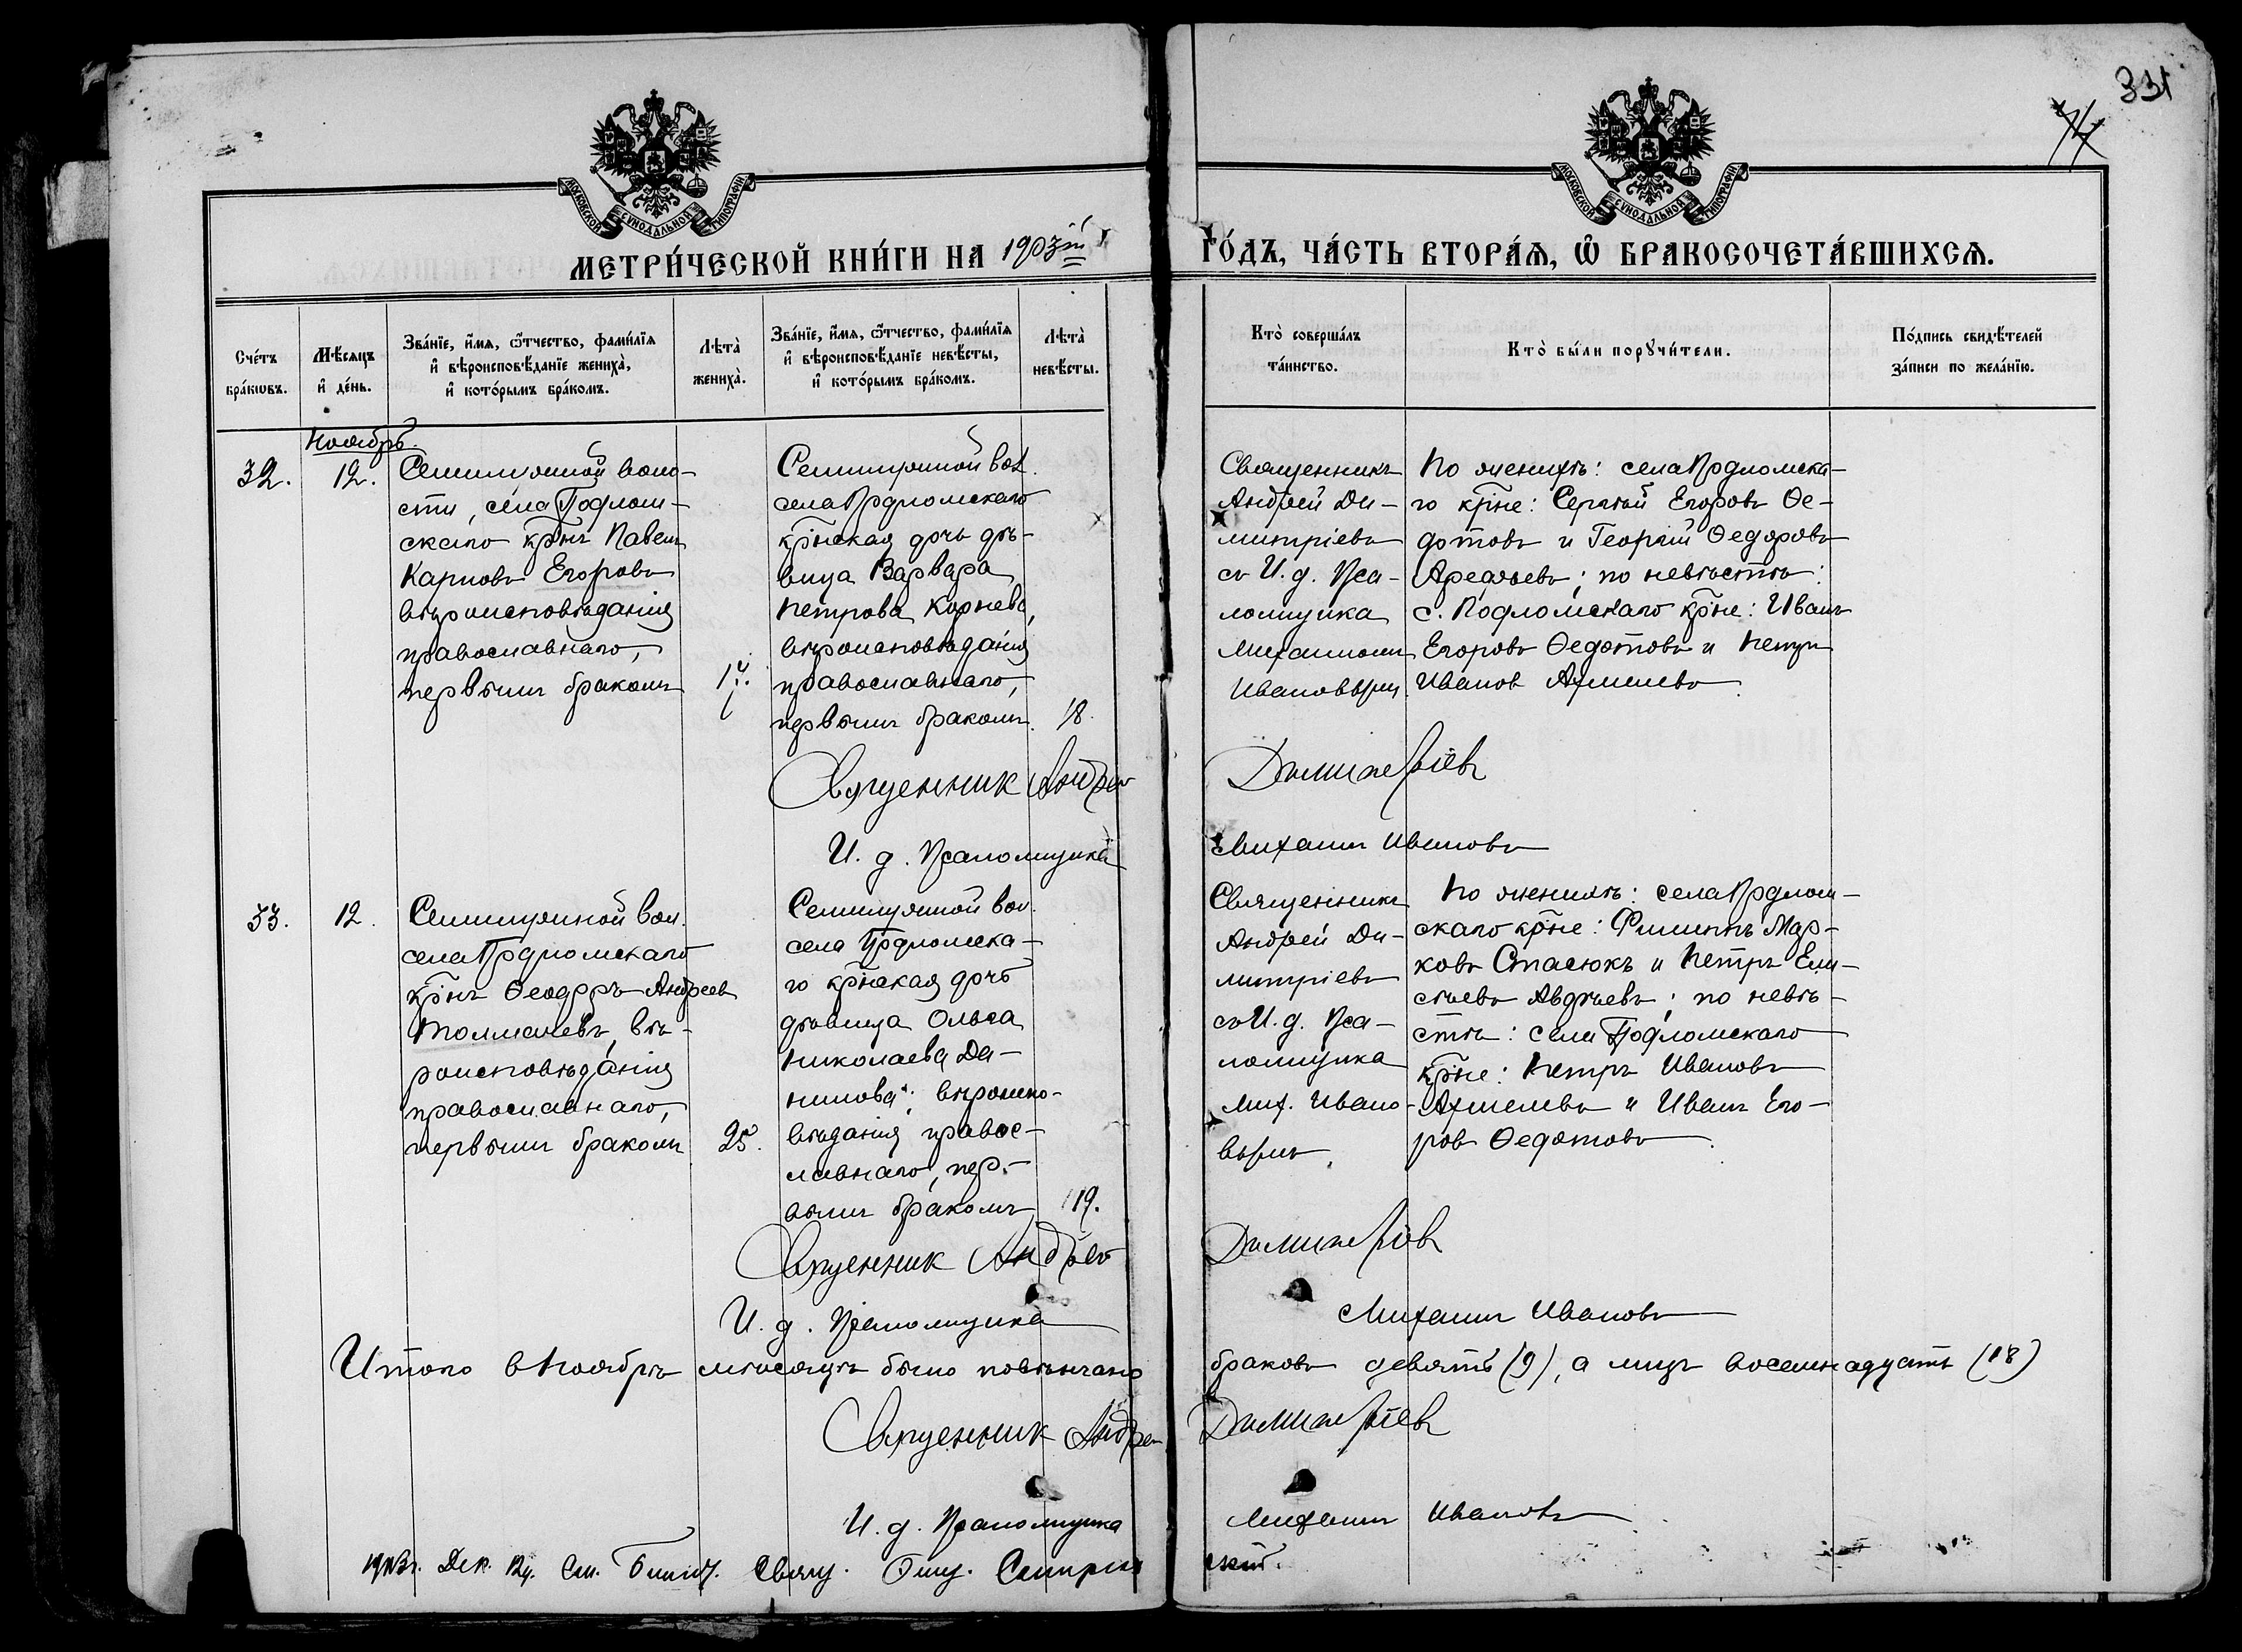 331
МОСКОВСКОЙ СУНОДАЛЬНОЙ ТИПОГРАФІИ
МОСКОВСКОЙ СУНОДАЛЬНОЙ ТИПОГРАФІИ
МЕТРИ́ЧЕСКОЙ КНИ́ГИ НА 1903й
ГО́ДЪ, ЧА́СТЬ ВТОРА́Ѧ, Ѽ БРАКОСОЧЕТА́ВШИХСѦ.
Сче́тъ
бра́кѡвъ.
Мѣ́сѧцъ
и҆ де́нь.
Зва́нїе, и҆́мѧ, ѻ҆́тчество, фами́лїѧ
и҆ вѣроисповѣ́данїе жениха̀,
и҆ кото́рымъ бра́комъ.
Лѣта̀
жениха̀.
Зва́нїе, и҆́мѧ, ѻ҆́тчество, фами́лїѧ
и҆ вѣроисповѣ́данїе невѣ́сты,
и҆ кото́рымъ бра́комъ.
Лѣта̀
невѣ́сты.
Кто̀ соверша́лъ
та́инство.
Кто̀ бы́ли порꙋчи́тели.
По́дпись свидѣ́телей
за́писи по жела́нїю.
Ноябрь.
32.
12.
воло-
сти, села Подлом-
скаго крнъ Павелъ
Карповъ Егоровъ
вѣроисповѣданія
православнаго,
первымъ бракомъ
17.
вол.
села Подломскаго
крнская дочь дѣ-
вица Варвара
Петрова Корнева,
вѣроисповѣданія
православнаго,
первымъ бракомъ.
18.
Священникъ
Андрей Ди-
митріевъ
съ И. д. Пса-
ломщика
Михаиломъ
Ивановымъ.
По женихѣ: села Подломска-
го крне: Сергѣй Егоровъ Ѳе-
дотовъ и Георгій Ѳедоровъ
Арефьевъ; по невѣстѣ:
с. Подломскаго крне: Иванъ
Егоровъ Ѳедотовъ и Петръ
Иванов
Священник Андрей
Димитріевъ
И. д. Псаломщика
Михаилъ Ивановъ
33.
12.
вол.
села Подломскаго
крнъ Ѳеодоръ Андреев
Толмачевъ, вѣ-
роисповѣданія
православнаго,
первымъ бракомъ
25.
вол.
села Подломска-
го крнская дочь
дѣвица Ольга
Николаева Да-
нилова; вѣроиспо-
вѣданія правос-
лавнаго, пер-
вымъ бракомъ
19.
Священникъ
Андрей Ди-
митріевъ
съ И. д. Пса-
ломщика
Мих. Ивано-
вымъ.
По женихѣ: села Подлом-
скаго крне: Филиппъ Мар-
ковъ Стасюкъ и Петръ Ели-
сѣевъ Авдѣевъ; по невѣ-
стѣ: села Подломскаго
крне: Петръ Ивановъ
и Иванъ Его-
ровъ Ѳедотовъ.
Священник Андрей
Димитріев
И. д. Псаломщика
Михаилъ Ивановъ
Итого в Ноябрѣ мѣсяцѣ было повѣнчано
браковъ девять (9), а лицъ восемнадцать (18)
Священник Андрей
Димитріевъ
И. д. Псаломщика
Михаилъ Ивановъ
1903г. Дек.